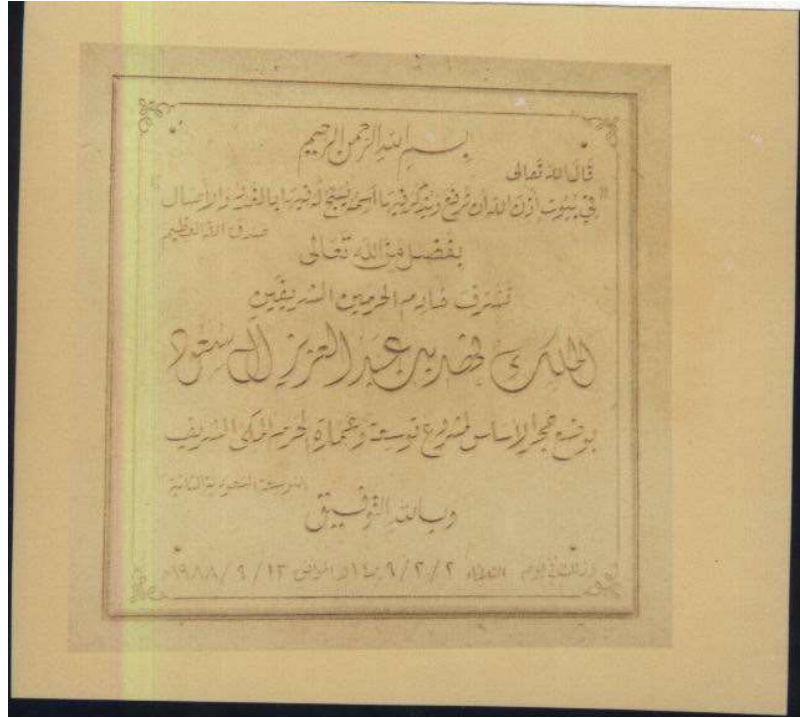 بسم الله الرحمن الرحيم
قال الله تعالى
"في بيوت أذن الله أن ترفع ويذكر فيها اسمه يسبح له فيها بالغدو والآصال"
صدق الله العظيم
بفضل من الله تعالى
تشرف خادم الحرمين الشريفين
الملك فهد بن عبد العزيز آل سعود
بوضع حجر الأساس لمشروع توسعة وعمارة الحرم المكي الشريف
التوسعة السعودية الثانية
وبالله التوفيق
وذلك في يوم الثلاثاء ٢/٢/١٤٠٩هـ الموافق ١٣/٩/١٩٨٨م